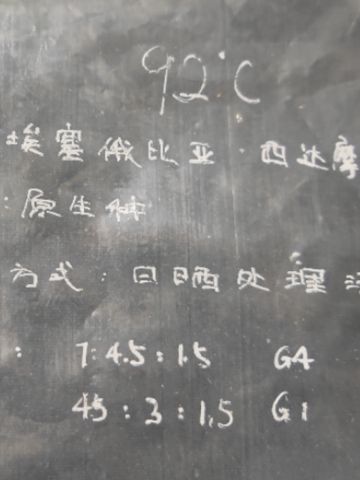 92°C
埃塞俄比亚·西达摩
:原生种
方式:日晒处理法
: 7:4.5:1.5 G4
45:3:1.5 G1